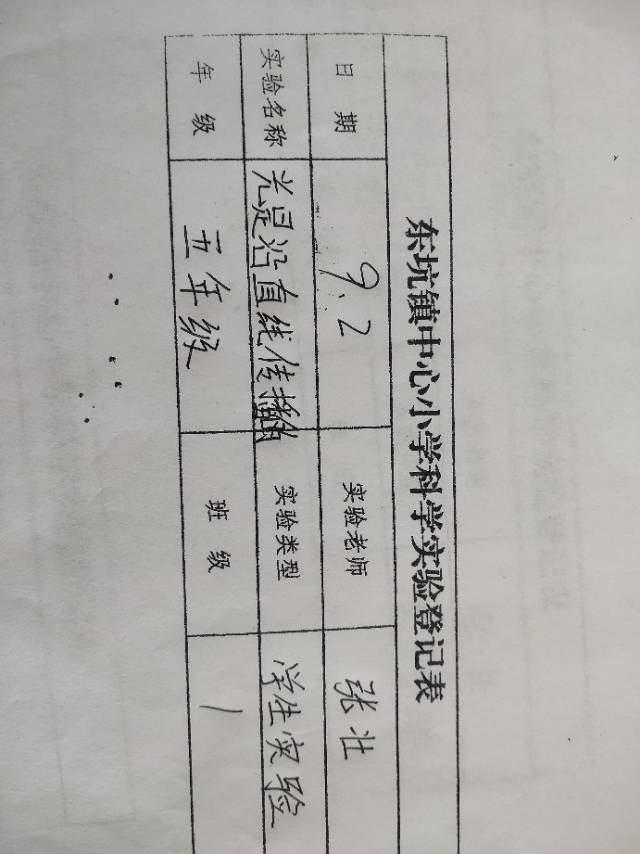 东坑镇中心小学科学实验登记表
日期 9.2 实验老师 张壮
实验名称 光是沿直线传播的 实验类型 学生实验
年级 五年级 班级 1